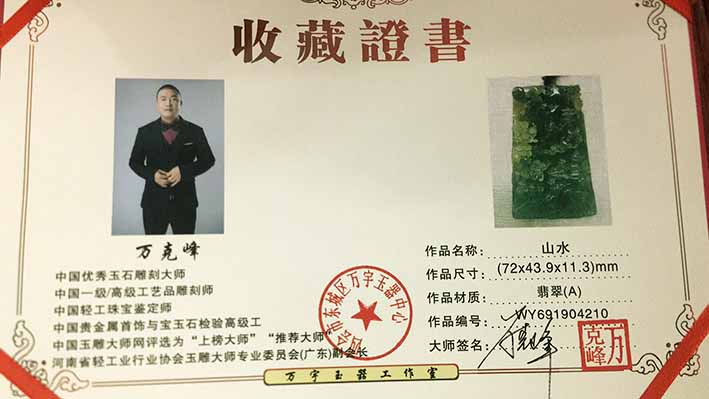 收藏證書
万克峰
中国优秀玉石雕刻大师
中国一级/高级工艺品雕刻师
中国轻工珠宝鉴定师
中国贵金属首饰与宝玉石检验高级工
中国玉雕大师网评选为“上榜大师”“推荐大师”
河南省轻工业行业协会玉雕大师专业委员会(广东)副会长
市东城区万宇玉器中心
作品名称: 山水
作品尺寸: (72x43.9x11.3)mm
作品材质: 翡翠(A)
作品编号: WY691904210
大师签名:
万克峰
万宇玉器工作室